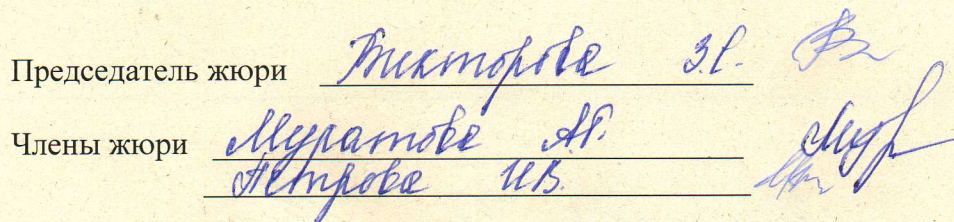 Председатель жюри Викторова З.С.
Члены жюри Муратова А.Г.
Петрова И.В.